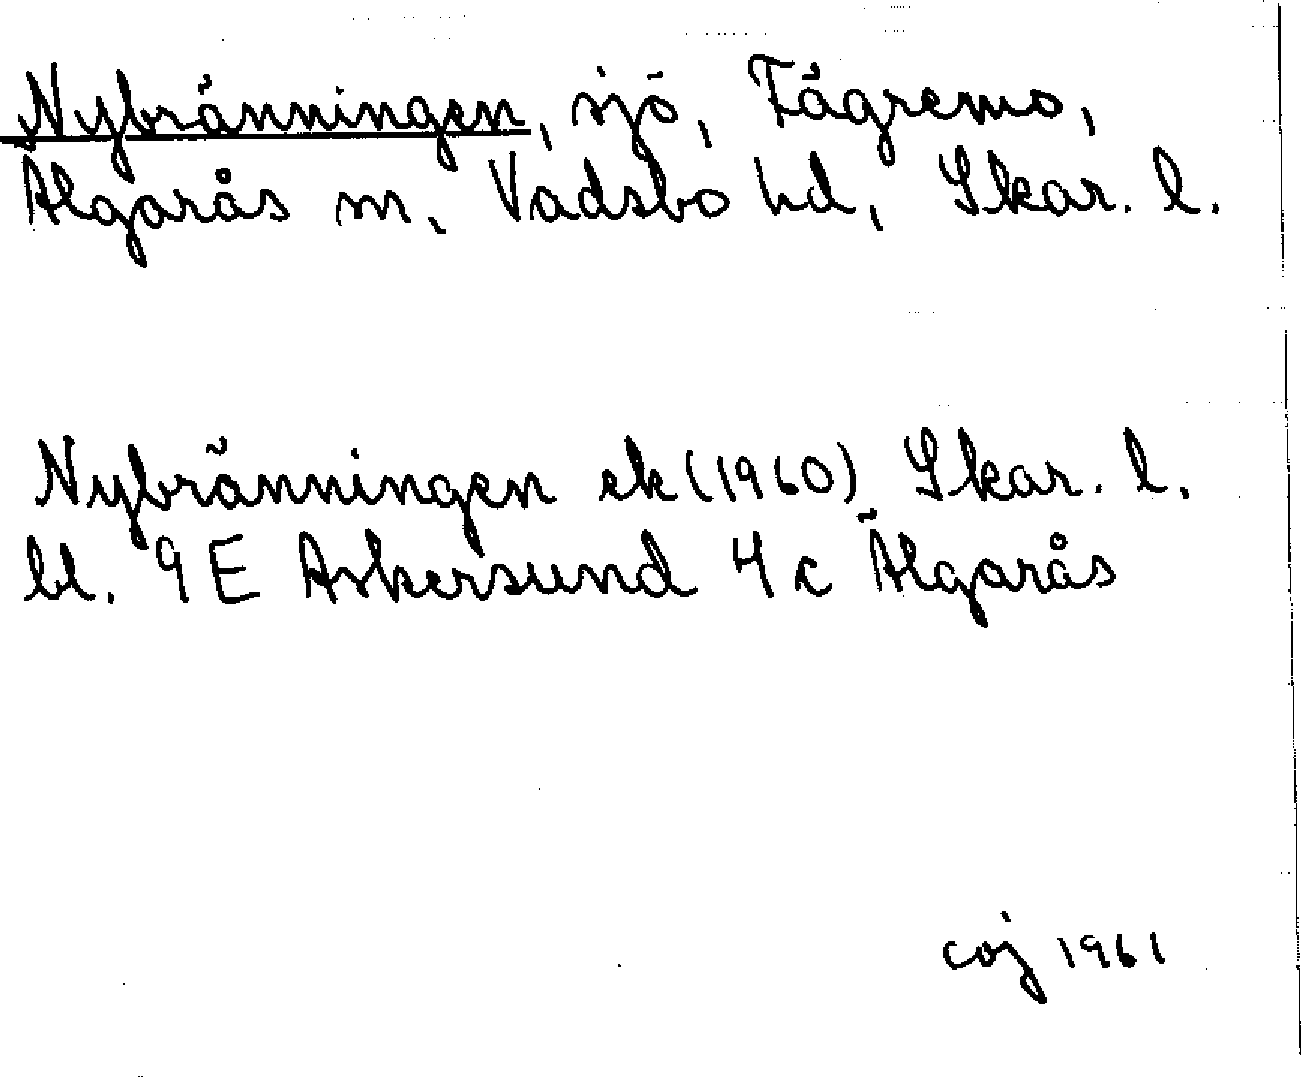 Nybränningen, sjö, Fägremo,
Älgarås sn, Vadsbo hd, Skar. l.
Nybränningen ek (1960) Skar. l.
bl. 9E Askersund 4c Älgarås
coj 1961